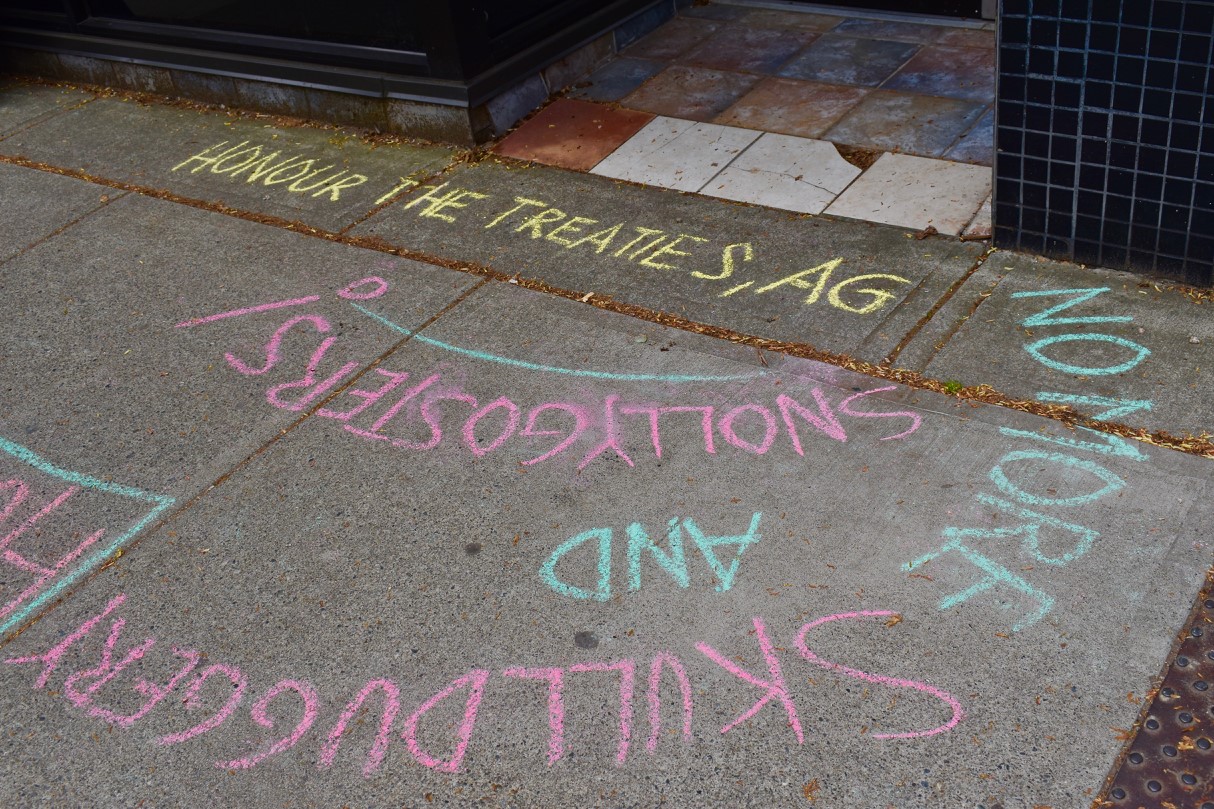 HONOUR THE TREATIES, AG
NO MORE
SNOLLYGOSTERS!
AND
SKULLDUGGERY